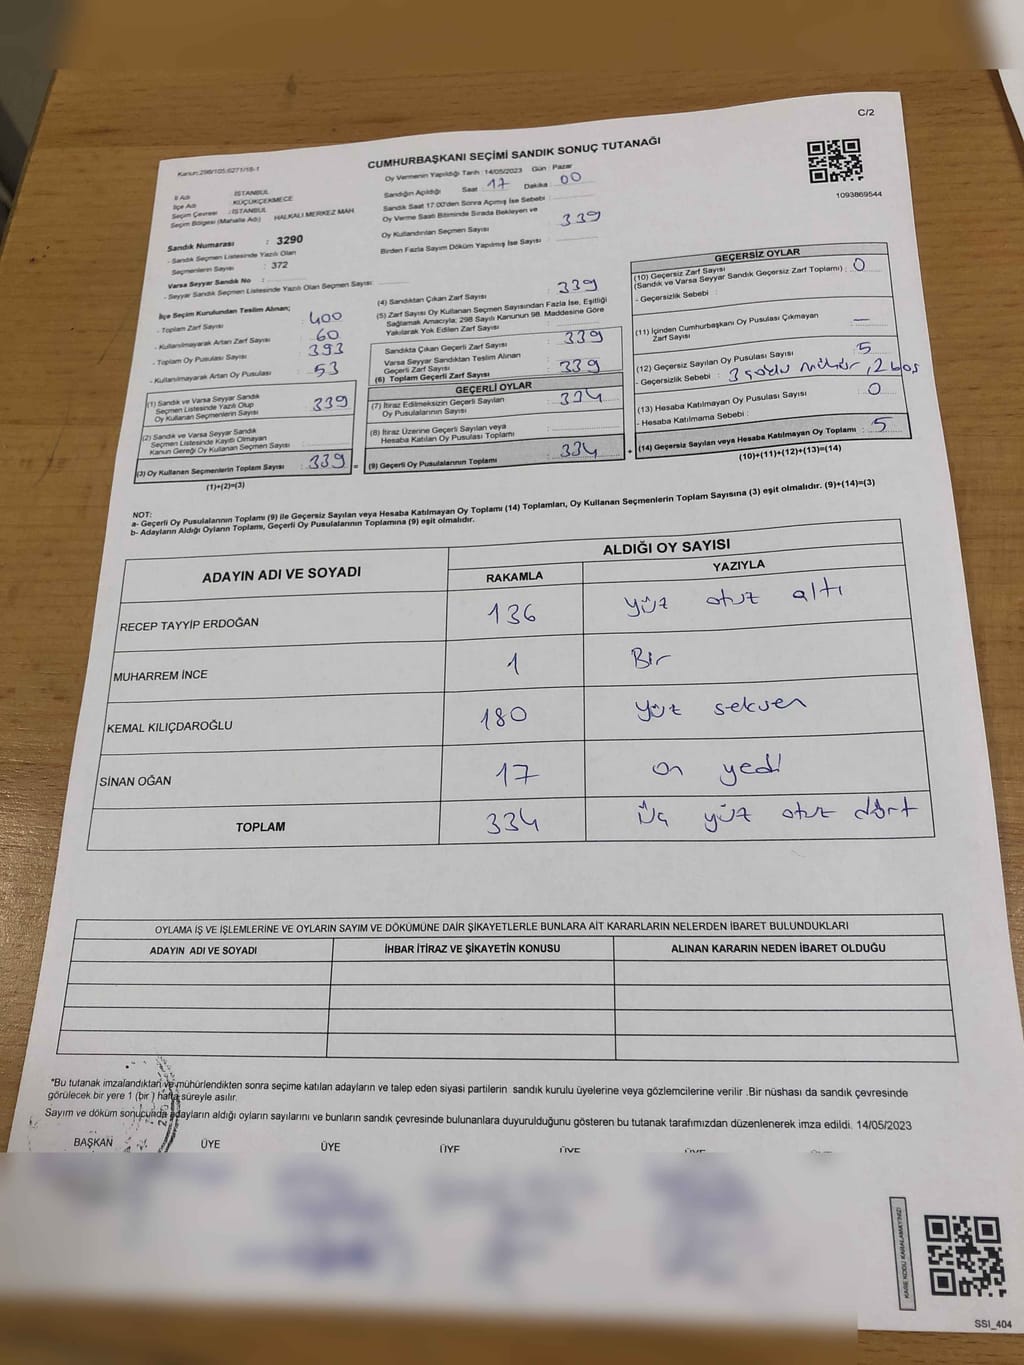 C/2
Kanun:298/105,6271/18-1
CUMHURBAŞKANI SEÇİMİ SANDIK SONUÇ TUTANAĞI
1093869544
İl Adı : İSTANBUL
İlçe Adı : KÜÇÜKÇEKMECE
Seçim Çevresi : İSTANBUL
Seçim Bölgesi (Mahalle Adı) HALKALI MERKEZ MAH
Sandık Numarası : 3290
- Sandık Seçmen Listesinde Yazılı Olan
Seçmenlerin Sayısı : 372
Varsa Seyyar Sandık No :
- Seyyar Sandık Seçmen Listesinde Yazılı Olan Seçmen Sayısı:
Oy Vermenin Yapıldığı Tarih :14/05/2023 Gün : Pazar
Sandığın Açıldığı Saat 17 Dakika 00
Sandık Saat 17:00'den Sonra Açımış İse Sebebi :
Oy Verme Saati Bitiminde Sırada Bekleyen ve
Oy Kullandırılan Seçmen Sayısı : 339
Birden Fazla Sayım Döküm Yapılmış İse Sayısı :
İlçe Seçim Kurulundan Teslim Alınan;
- Toplam Zarf Sayısı : 400
- Kullanılmayarak Artan Zarf Sayısı : 60
- Toplam Oy Pusulası Sayısı : 393
- Kullanılmayarak Artan Oy Pusulası : 53
(1) Sandık ve Varsa Seyyar Sandık
Seçmen Listesinde Yazılı Olup
Oy Kullanan Seçmenlerin Sayısı : 339
(2) Sandık ve Varsa Seyyar Sandık
Seçmen Listesinde Kayıtlı Olmayan
Kanun Gereği Oy Kullanan Seçmen Sayısı :
(3) Oy Kullanan Seçmenlerin Toplam Sayısı : 339
(1)+(2)=(3)
(4) Sandıktan Çıkan Zarf Sayısı : 339
(5) Zarf Sayısı Oy Kullanan Seçmen Sayısından Fazla İse, Eşitliği
Sağlamak Amacıyla; 298 Sayılı Kanunun 98. Maddesine Göre
Yakılarak Yok Edilen Zarf Sayısı :
Sandıkta Çıkan Geçerli Zarf Sayısı : 339
Varsa Seyyar Sandıktan Teslim Alınan
Geçerli Zarf Sayısı :
(6) Toplam Geçerli Zarf Sayısı : 339
GEÇERLİ OYLAR
(7) İtiraz Edilmeksizin Geçerli Sayılan
Oy Pusulalarının Sayısı : 334
(8) İtiraz Üzerine Geçerli Sayılan veya
Hesaba Katılan Oy Pusulası Toplamı :
(9) Geçerli Oy Pusulalarının Toplamı : 334
GEÇERSİZ OYLAR
(10) Geçersiz Zarf Sayısı
(Sandık ve Varsa Seyyar Sandık Geçersiz Zarf Toplamı) : 0
- Geçersizlik Sebebi :
(11) İçinden Cumhurbaşkanı Oy Pusulası Çıkmayan
Zarf Sayısı : —
(12) Geçersiz Sayılan Oy Pusulası Sayısı : 5
- Geçersizlik Sebebi : 3 çoklu mühür, 2 boş
(13) Hesaba Katılmayan Oy Pusulası Sayısı : 0
- Hesaba Katılmama Sebebi :
(14) Geçersiz Sayılan veya Hesaba Katılmayan Oy Toplamı : 5
(10)+(11)+(12)+(13)=(14)
NOT:
a- Geçerli Oy Pusulalarının Toplamı (9) ile Geçersiz Sayılan veya Hesaba Katılmayan Oy Toplamı (14) Toplamları, Oy Kullanan Seçmenlerin Toplam Sayısına (3) eşit olmalıdır. (9)+(14)=(3)
b- Adayların Aldığı Oyların Toplamı, Geçerli Oy Pusulalarının Toplamına (9) eşit olmalıdır.
ADAYIN ADI VE SOYADI
ALDIĞI OY SAYISI
RAKAMLA YAZIYLA
RECEP TAYYİP ERDOĞAN 136 yüz otuz altı
MUHARREM İNCE 1 Bir
KEMAL KILIÇDAROĞLU 180 yüz seksen
SİNAN OĞAN 17 on yedi
TOPLAM 334 üç yüz otuz dört
OYLAMA İŞ VE İŞLEMLERİNE VE OYLARIN SAYIM VE DÖKÜMÜNE DAİR ŞİKAYETLERLE BUNLARA AİT KARARLARIN NELERDEN İBARET BULUNDUKLARI
ADAYIN ADI VE SOYADI İHBAR İTİRAZ VE ŞİKAYETİN KONUSU ALINAN KARARIN NEDEN İBARET OLDUĞU
*Bu tutanak imzalandıktan ve mühürlendikten sonra seçime katılan adayların ve talep eden siyasi partilerin sandık kurulu üyelerine veya gözlemcilerine verilir .Bir nüshası da sandık çevresinde
görülecek bir yere 1 (bir ) hafta süreyle asılır.
Sayım ve döküm sonucunda adayların aldığı oyların sayılarını ve bunların sandık çevresinde bulunanlara duyurulduğunu gösteren bu tutanak tarafımızdan düzenlenerek imza edildi. 14/05/2023
BAŞKAN ÜYE ÜYE ÜYE ÜYE
KARE KODU KARALAMAYINIZ!
SSI_404